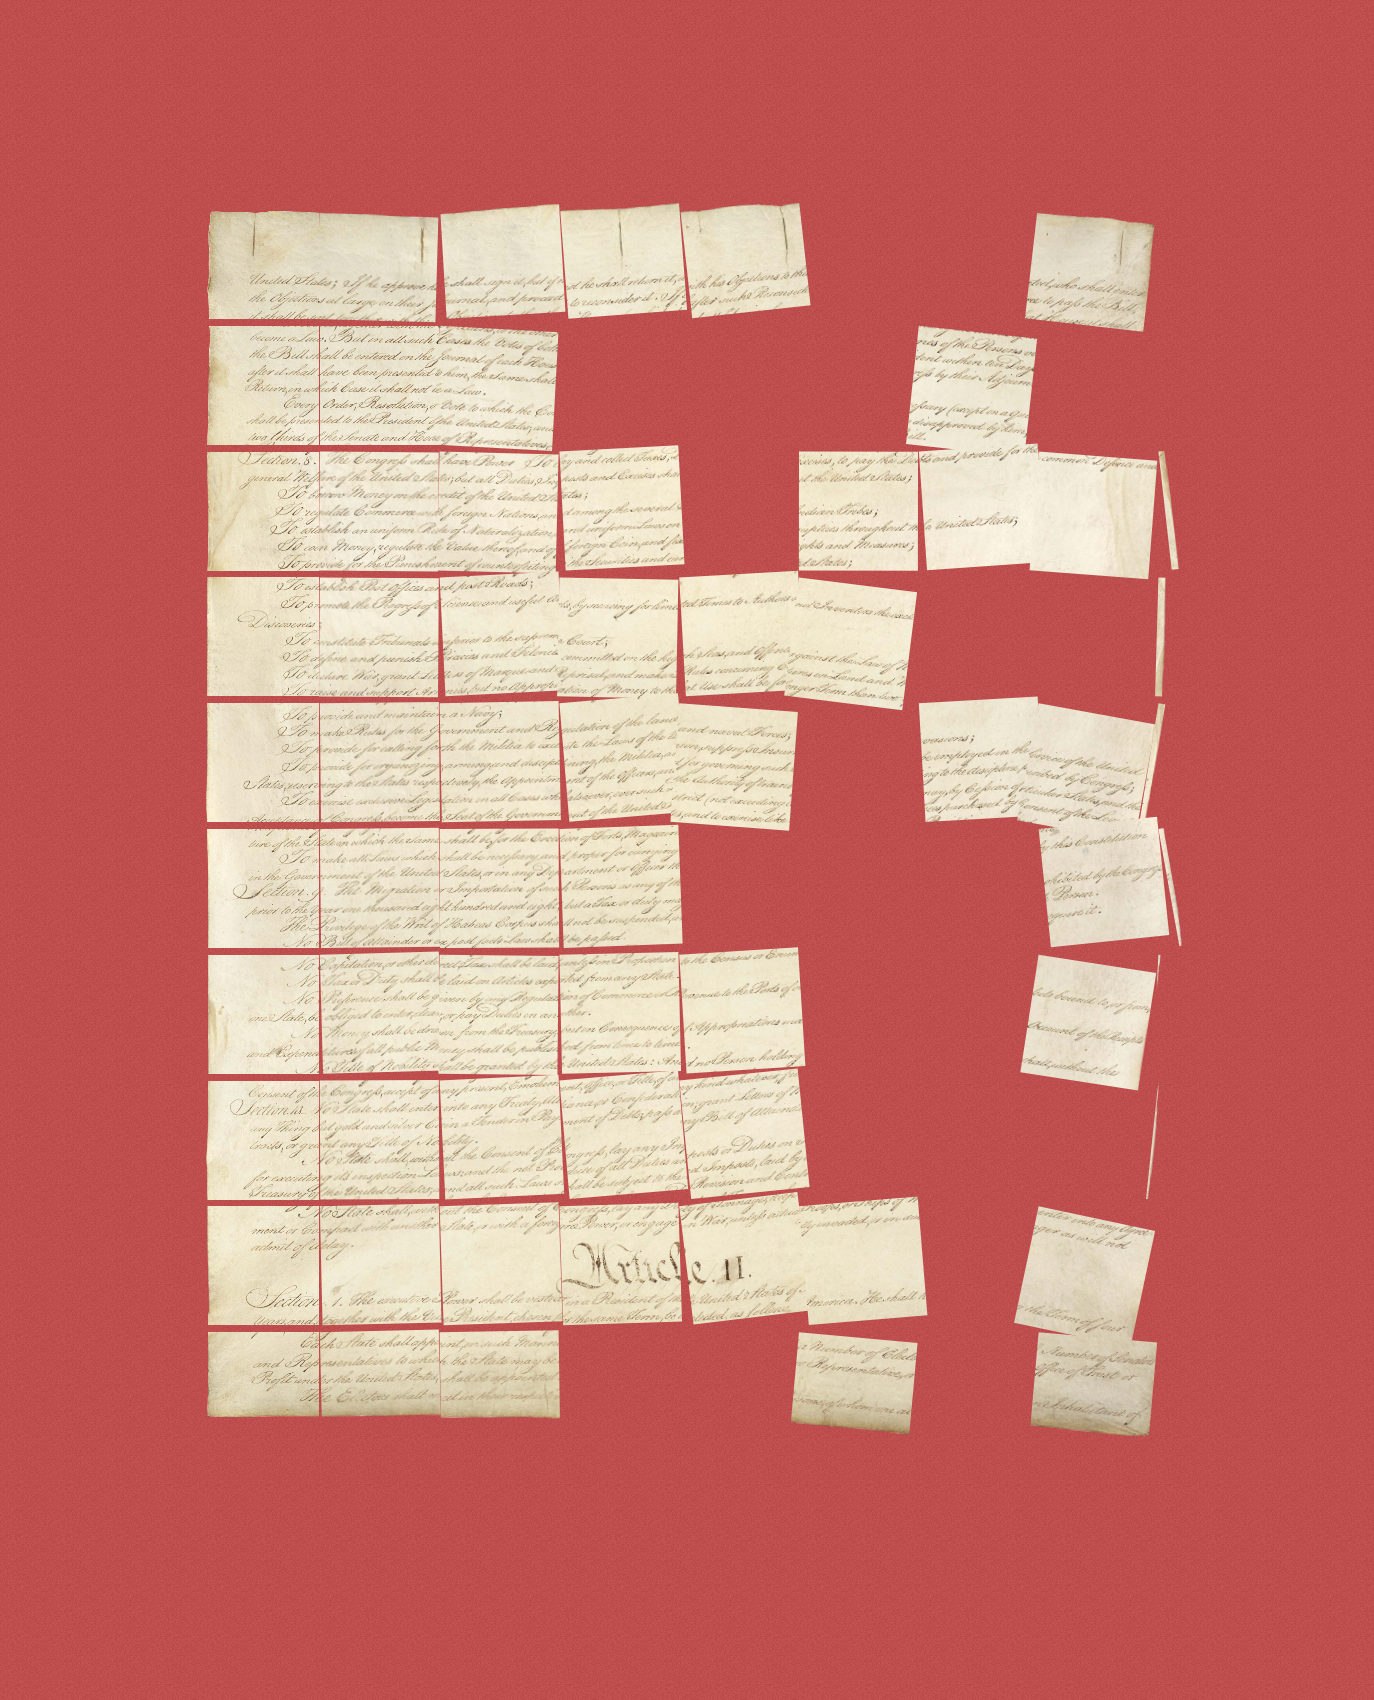 United States; If he approve he shall sign it, but if n d he shall return it, w th his Objections to tha ted, who shall enter
the Objections at large on their J ournal, and proceed to reconsider it. If after such Reconside ree to pass the Bill,
it shall be sent
become a Law. But in all such Cases the Votes of both mes of the Persons vo
the Bill shall be entered on the Journal of each House dent within ten Days
after it shall have been presented to him, the Same shall ress by their Adjournm
Return, in which Case it shall not be a Law.
Every Order, Resolution, or Vote to which the Co essary (except on a que
shall be presented to the President of the United States; and disapproved by him,
two thirds of the Senate and House of Representatives, ill.
Section. 8. The Congress shall have Power To lay and collect Taxes, D xcises, to pay the Debts and provide for the common Defence and
general Welfare of the United States; but all Duties, Imposts and Excises shall ut the United States;
To borrow Money on the credit of the United States;
To regulate Commerce with foreign Nations, and among the several S ndian Tribes;
To establish an uniform Rule of Naturalization, and uniform Laws on uptcies throughout the United States;
To coin Money, regulate the Value thereof, and of foreign Coin, and fix ghts and Measures;
To provide for the Punishment of counterfeiting the Securities and curr d States;
To establish Post Offices and post Roads;
To promote the Progress of Science and useful Arts, by securing for limited Times to Authors and Inventors the excl
Discoveries;
To constitute Tribunals inferior to the supreme Court;
To define and punish Piracies and Felonies committed on the high Seas, and Offences against the Law of N
To declare War, grant Letters of Marque and Reprisal, and make Rules concerning Captures on Land and W
To raise and support Armies, but no Appropriation of Money to that Use shall be for a longer Term than two
To provide and maintain a Navy;
To make Rules for the Government and Regulation of the land and naval Forces;
To provide for calling forth the Militia to execute the Laws of the Union, suppress Insurr vasions;
To provide for organizing, arming, and disciplining, the Militia, and for governing such be employed in the Service of the United
States, reserving to the States respectively, the Appointment of the Officers, and the Authority of training ing to the discipline prescribed by Congress;
To exercise exclusive Legislation in all Cases whatsoever, over such District (not exceeding t may, by Cession of particular States, and the
Acceptance of Congress, become the Seat of the Government of the United States, and to exercise like ces purchased by the Consent of the Legi
ture of the State in which the Same shall be, for the Erection of Forts, Magazin
To make all Laws which shall be necessary and proper for carrying by this Constitution
in the Government of the United States, or in any Department or Officer th
Section. 9. The Migration or Importation of such Persons as any of th ohibited by the Congress
prior to the Year one thousand eight hundred and eight, but a Tax or duty may Person.
The Privilege of the Writ of Habeas Corpus shall not be suspended, u equire it.
No Bill of Attainder or ex post facto Law shall be passed
No Capitation, or other direct, Tax shall be laid, unless in Proportion to the Census or Enum
No Tax or Duty shall be laid on Articles exported from any State.
No Preference shall be given by any Regulation of Commerce or Revenue to the Ports of o sels bound to, or from,
one State, be obliged to enter, clear, or pay Duties in another.
No Money shall be drawn from the Treasury, but in Consequence of Appropriations ma Account of the Receipts
and Expenditures of all public Money shall be published from time to time.
No Title of Nobility shall be granted by the United States: And no Person holding shall, without the
Consent of the Congress, accept of any present, Emolument, Office, or Title, of any kind whatever, f
Section. 10. No State shall enter into any Treaty, Alliance, or Confederation; grant Letters of M
any Thing but gold and silver Coin a Tender in Payment of Debts; pass any Bill of Attainde
tracts, or grant any Title of Nobility.
No State shall, without the Consent of the Congress, lay any Imposts or Duties on
for executing it's inspection Laws: and the net Produce of all Duties and Imposts, laid by
Treasury of the United States; and all such Laws shall be subject to the Revision and Cont
No State shall, without the Consent of Congress, lay any Duty of Tonnage, keep Troops, or Ships of W enter into any Agree
ment or Compact with another State, or with a foreign Power, or engage in War, unless actually invaded, or in im ger as will not
admit of delay.
Article. II.
Section. 1. The executive Power shall be vested in a President of the United States of America. He shall the Term of four
Years, and, together with the Vice President, chosen for the same Term, be elected, as follows
Each State shall appoint, in such Manner a Number of Electo Number of Senators
and Representatives to which the State may be or Representative, or Office of Trust or
Profit under the United States, shall be appointed
The Electors shall meet in their respect sons, of whom one at an Inhabitant of